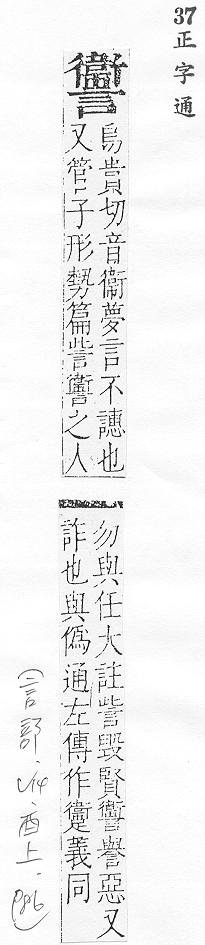 37
正字通
讆
烏貴切音衞夢言不譓也
又管子形勢篇訾讆之人
勿與任大註訾毀賢讆譽惡又
詐也與僞通左傳作躗義同
(言部.酉上.p86)